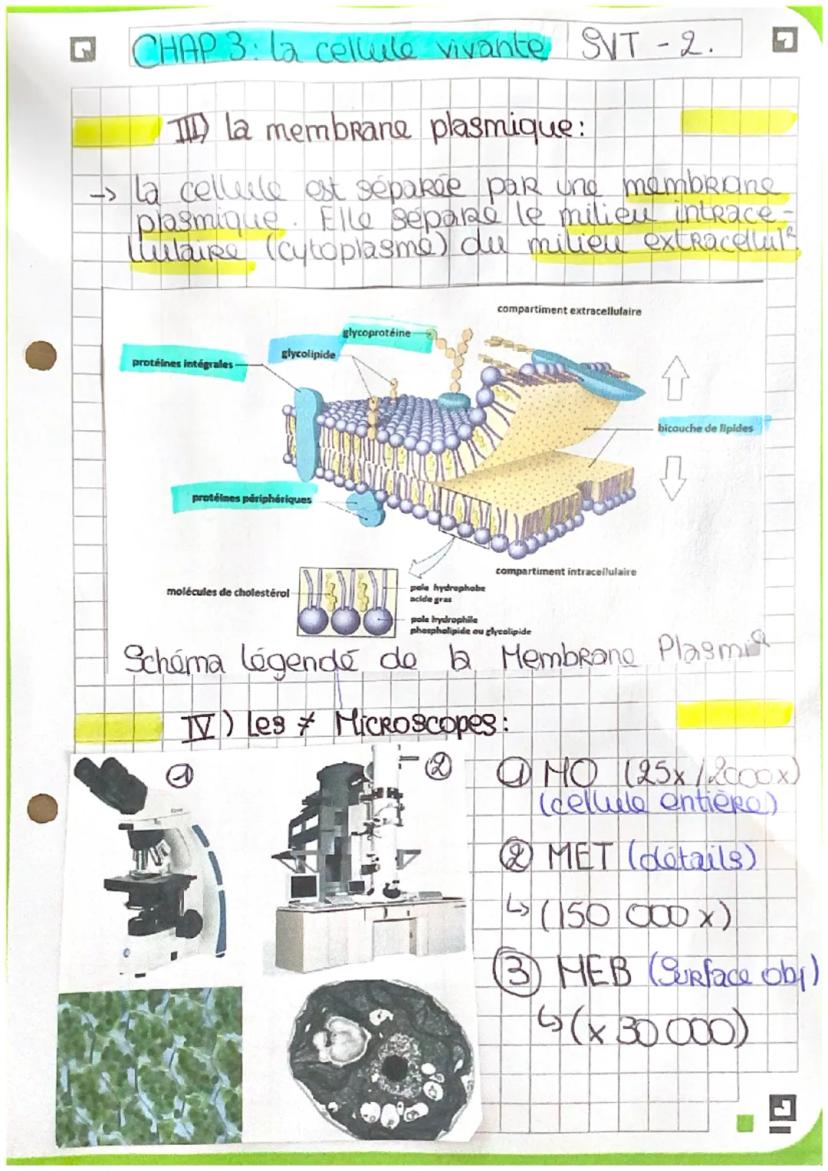 CHAP 3: la cellule vivante SVT - 2.
III) La membrane plasmique:
→ La cellule est séparée par une membrane
plasmique. Elle sépare le milieu intrace-
llulaire (cytoplasme) du milieu extracellulR
compartiment extracellulaire
glycoprotéine
glycolipide
protéines intégrales
bicouche de lipides
protéines périphériques
compartiment intracellulaire
molécules de cholestérol
pole hydrophobe
acide gras
pole hydrophile
phospholipide ou glycolipide
Schéma légendé de la Membrane Plasmiq
IV) Les ≠ Microscopes:
① ② ① MO (25x/2000x)
(cellule entière)
② MET (détails)
↳ (150 000 x)
③ MEB (Surface obj)
↳ (x 30 000)